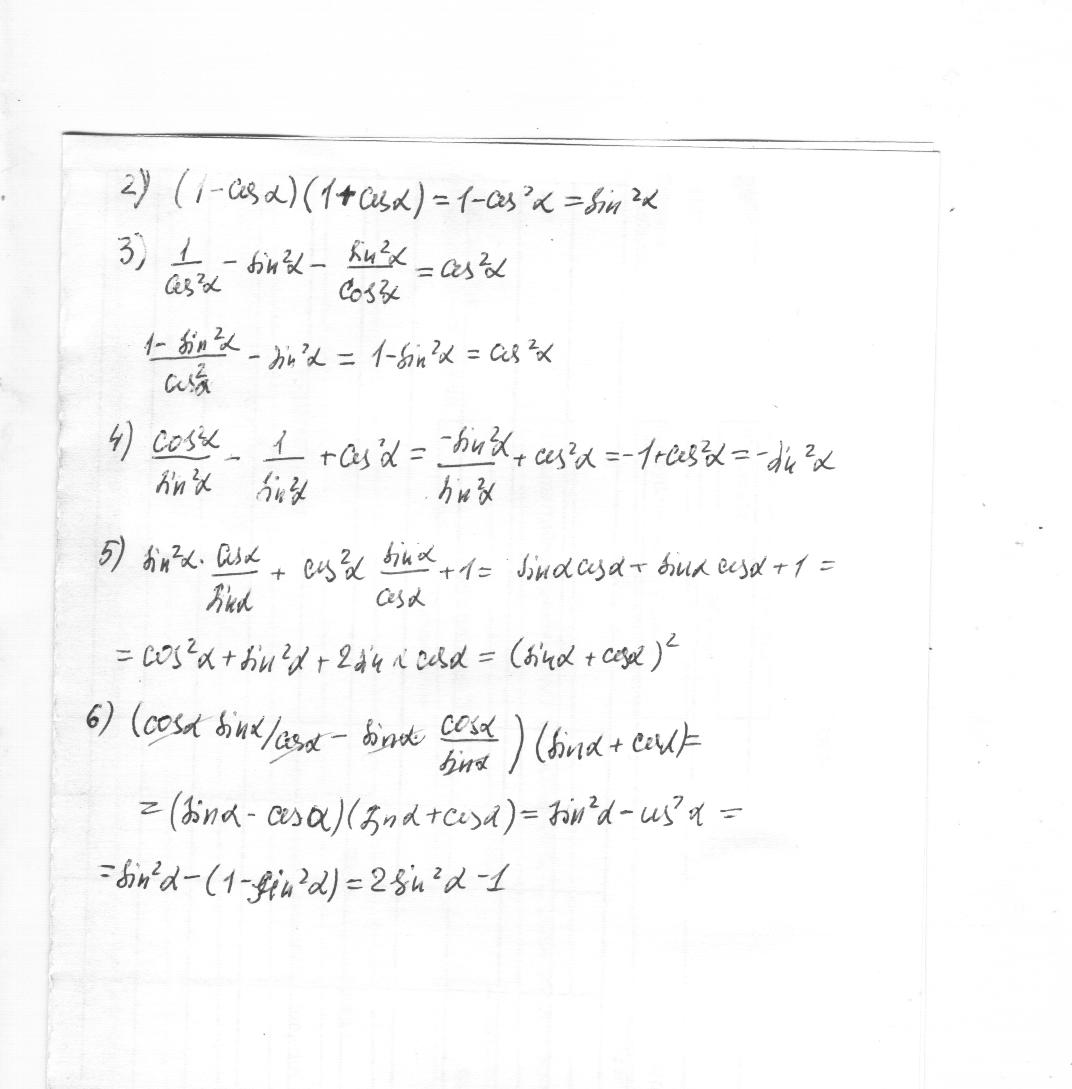 2) (1-cosα)(1+cosα)=1-cos²α=sin²α
3) 1/cos²α - sin²α - sin²α/cos²α = cos²α
(1-sin²α)/cos²α - sin²α = 1-sin²α = cos²α
4) cos²α/sin²α - 1/sin²α + cos²α = -sin²α/sin²α + cos²α = -1+cos²α = -sin²α
5) sin²α · cosα/sinα + cos²α sinα/cosα + 1 = sinα cosα + sinα cosα + 1 =
= cos²α + sin²α + 2sinα cosα = (sinα + cosα)²
6) (cosα sinα/cosα - sinα cosα/sinα) (sinα + cosα) =
= (sinα - cosα)(sinα + cosα) = sin²α - cos²α =
= sin²α - (1-sin²α) = 2sin²α - 1